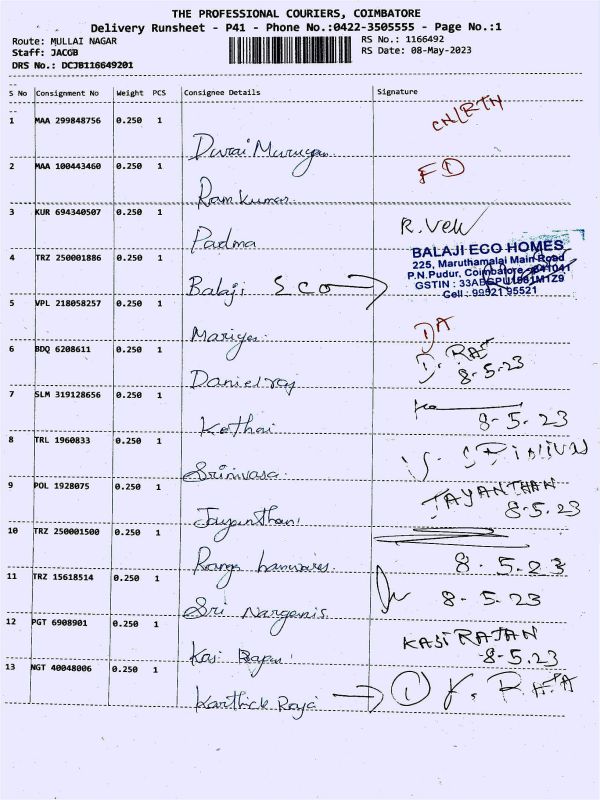 THE PROFESSIONAL COURIERS, COIMBATORE
Delivery Runsheet - P41 - Phone No.:0422-3505555 - Page No.:1
Route: MULLAI NAGAR RS No.: 1166492
Staff: JACOB RS Date: 08-May-2023
DRS No.: DCJB116649201
S No Consignment No Weight PCS Consignee Details Signature
1 MAA 299848756 0.250 1
Durai Murugan
2 MAA 100443460 0.250 1 FD
Ram Kumar
3 KUR 694340507 0.250 1 R. Velu
Padma
BALAJI ECO HOMES
225, Maruthamalai Main Road
4 TRZ 250001886 0.250 1
P.N.Pudur, Coimbatore - 641041
GSTIN :
Cell : 99521 95521
Balaji Eco →
5 VPL 218058257 0.250 1
DA
6 BDQ 6208611 0.250 1
8-5-23
Danielraj
7 SLM 319128656 0.250 1
8-5-23
Kothai
8 TRL 1960833 0.250 1
Srinivasa
9 POL 1928075 0.250 1 JAYANTHAN
8-5.23
Jayanthan
10 TRZ 250001500 0.250 1
8-5-23
11 TRZ 15618514 0.250 1
8-5-23
Sri
12 PGT 6908901 0.250 1 KASIRAJAN
8-5.23
Kasi Rajan
13 NGT 40048006 0.250 1
Karthick Raja →